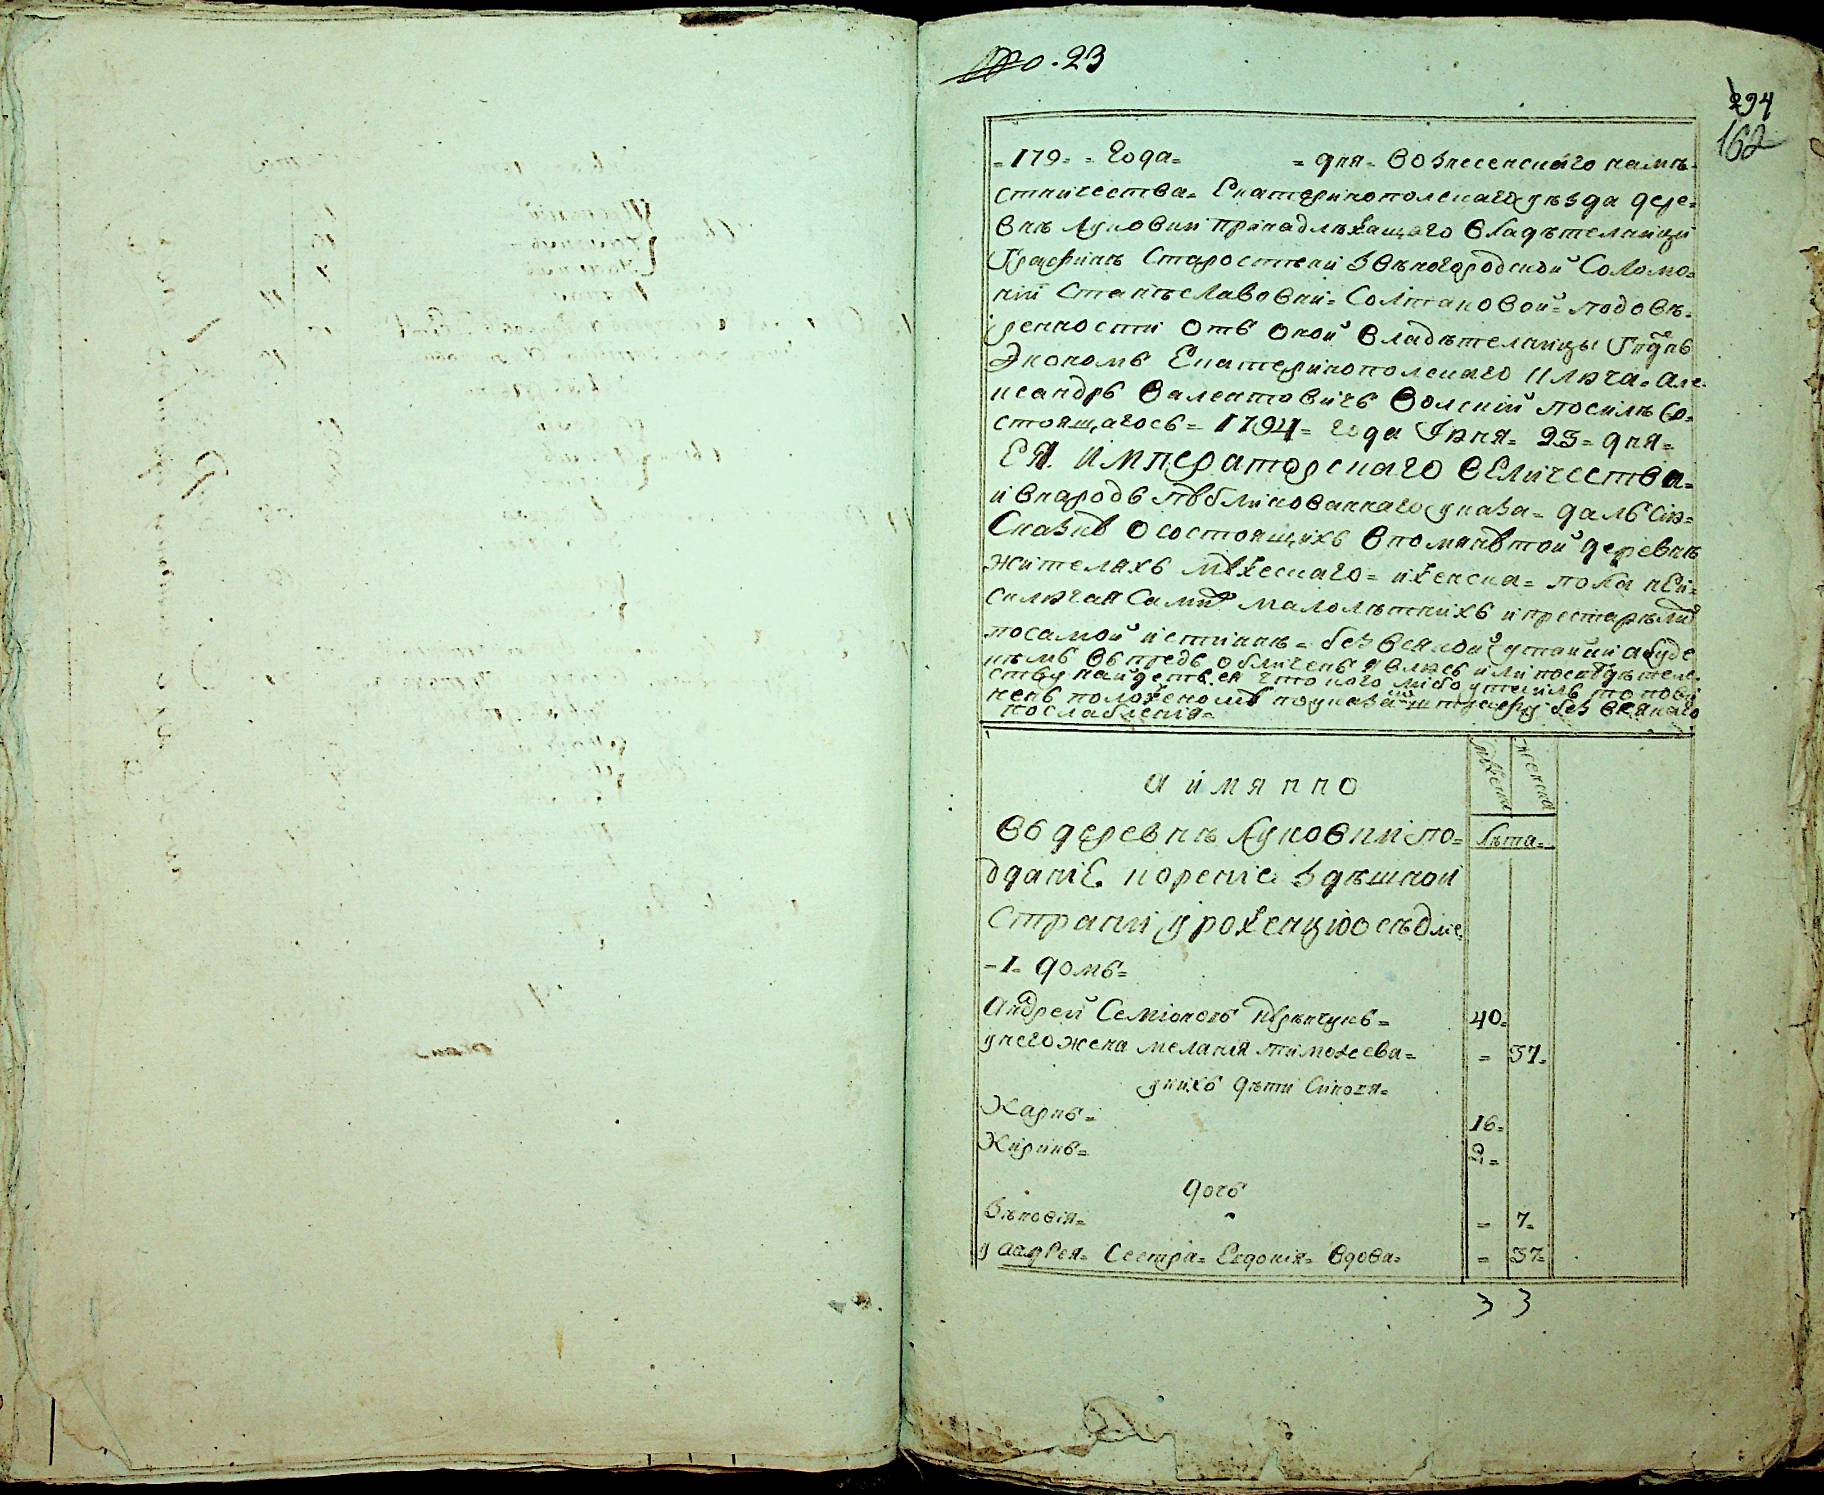 №. 23
294
162
179 года дня вознесенскаго намѣ-
стничества Екатеринополскаго уѣзда дере-
внѣ Луковки принадлѣжащаго владѣтелницы
Графинѣ Старостыни Звѣногородской Соломо-
нии Станѣславовни Солтановой подовѣ-
ренности отъ оной владѣтелницы Гпднъ
Экономъ Екатеринополскаго ключа Але-
ксандръ Валентовичъ Волский посилѣ со-
стоящагось 1794 года Iюня 23 дня
ЕЯ императорскаго величества
и внародъ публикованнаго указа далъ сию
Сказку о состоящихъ впомянутой деревнѣ
жителяхъ мужескаго и женска пола неи-
сключая самих малолѣтнихъ и престарѣлих
посамой истиннѣ безвсякой утайки абуде
кѣмъ въпредь обличенъ явлюсь или посвѣдѣтел-
ству найдется что кого либо утаилъ то пови-
ненъ положеному поуказам штрафу без всякаго
послабления
а имянно
мужеска
женска
въ деревнѣ Луковки по-
лѣта
ддание корение здѣшной
страни урожен
1 домъ
Андрей Семионовъ 40
унего жена мелания тимофеева 37
у нихъ дѣти синовя
Карпъ 16
Кирикъ 2
дочь
Зѣновия 7
у андрея сестра Евдокия вдова 37
3 3